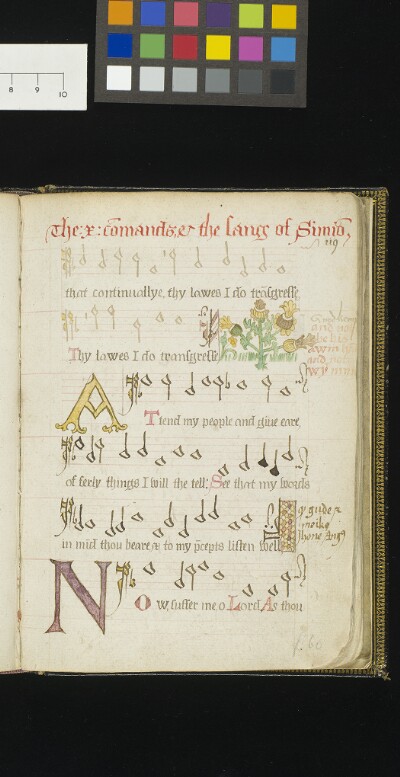 8 9 10
The: x: comands, & the sang of Simio,
119
that continuallye, thy lawes I do trasgresse
Thy lawes I do transgresse
A Ttend my people and giue eare
of ferly things I will the tell: See that my words
in mid thou beare, & to my pcepts listen well
N Ow, suffer me o Lord As thou
f. 60